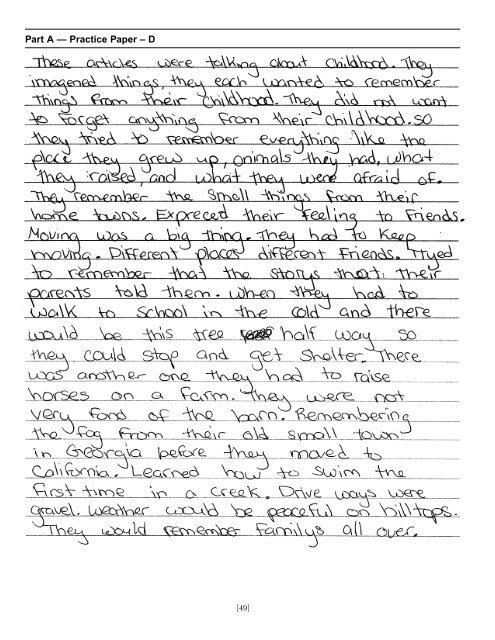 Part A — Practice Paper – D
These articles were talking about childhood. They
imagened things, they each wanted to remember
things from their childhood. They did not want
to forget anything from their childhood. so
they tried to remember everything like the
place they grew up, animals they had, what
they raised, and what they were afraid of.
They remember the small things from their
home towns. Expreced their feeling to friends.
Moving was a big thing. They had to keep
moving. Different places different friends. Tryed
to remember that the storys that their
parents told them. When they had to
walk to school in the cold and there
would be this tree half way so
they could stop and get shelter. There
was another one they had to raise
horses on a farm. They were not
very fond of the barn. Remembering
the fog from their old small town
in Georgia before they moved to
California. Learned how to swim the
first time in a creek. Drive ways were
gravel. weather would be peaceful on hilltops.
They would remember familys all over.
[49]